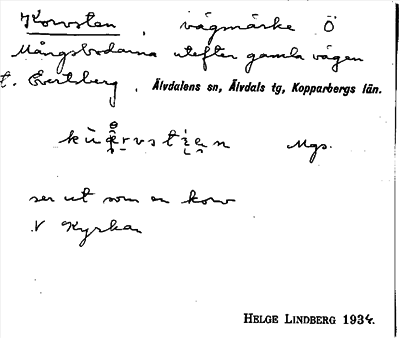 Korvsten, vägmärke Ö
Mångsbodarna utefter gamla vägen
t. Evertsberg, Älvdalens sn, Älvdals tg, Kopparbergs län.
Mgs.
ser ut som en korv
N Kyrkan
HELGE LINDBERG 1934.